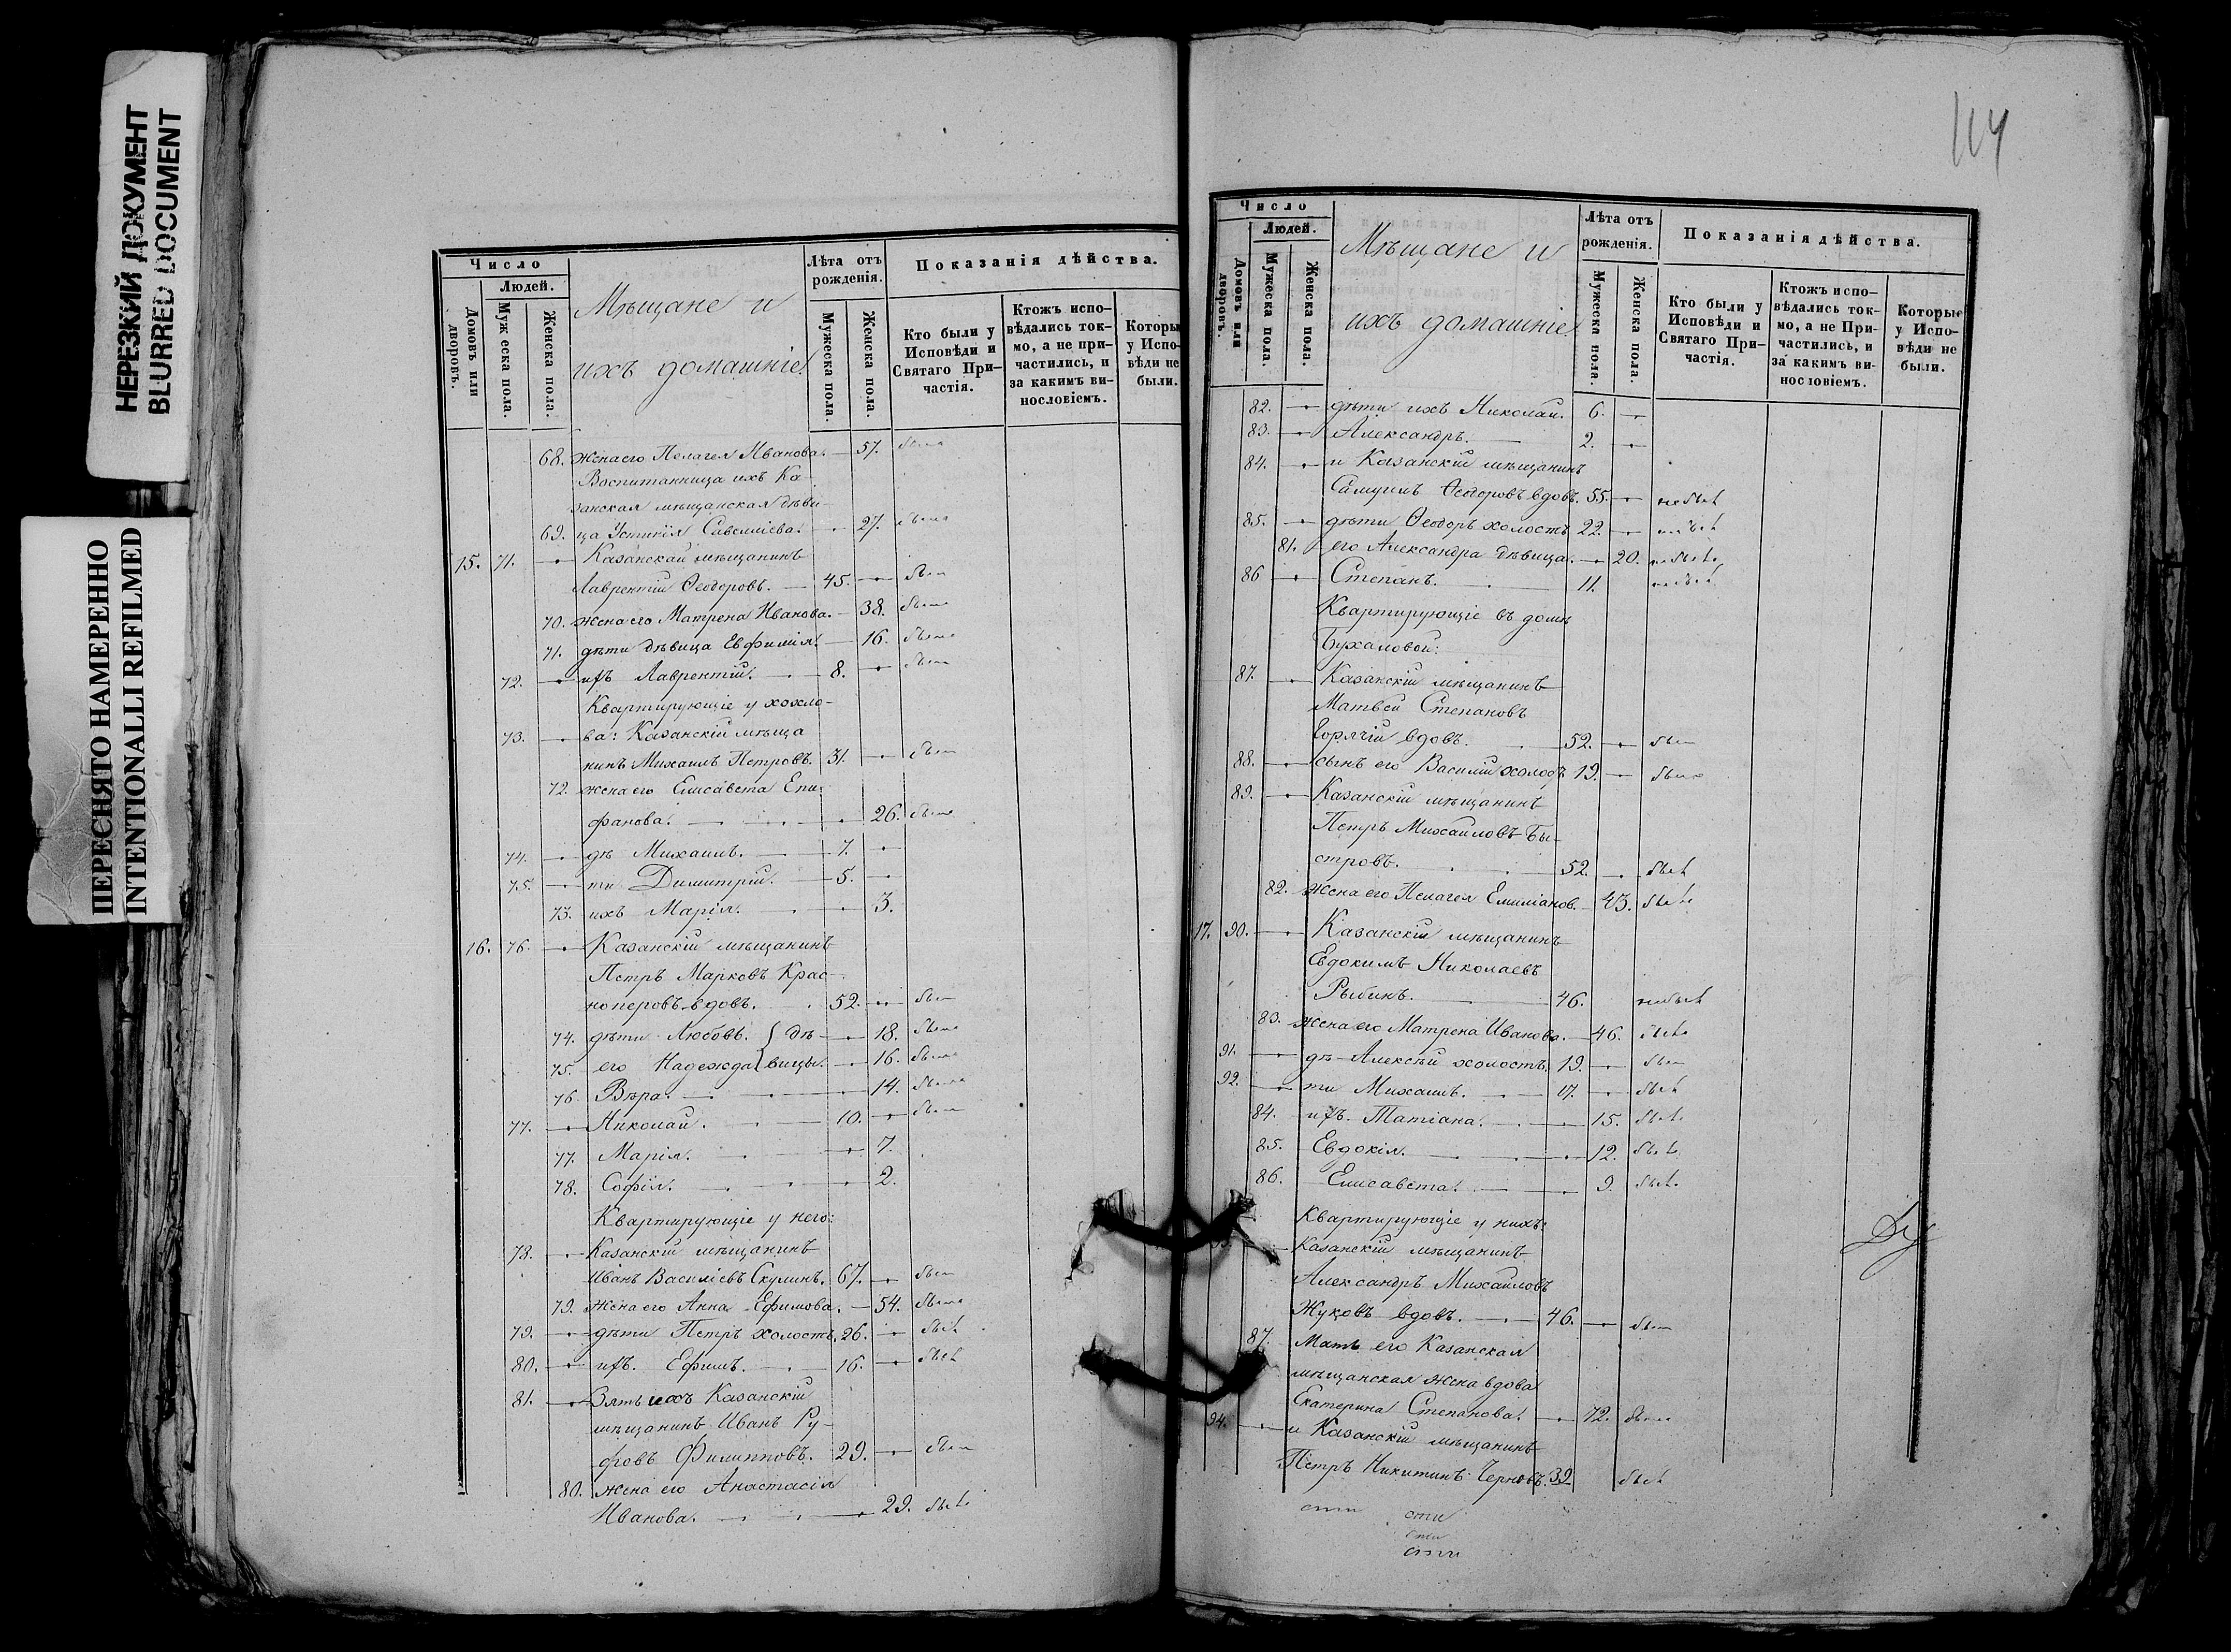 НЕРЕЗКИЙ ДОКУМЕНТ
BLURRED DOCUMENT
ПЕРЕСНЯТО НАМЕРЕННО
INTENTIONALLI REFILMED
Число
Людей.
Домовъ или дворовъ.
Мужеска пола.
Женска пола.
Мѣщане и
ихъ домашніе
Лѣта отъ рожденія.
Мужеска пола.
Женска пола.
Показанія дѣйства.
Кто были у Исповѣди и Святаго Причастія.
Ктожъ исповѣдались токмо, а не причастились, и за какимъ винословіемъ.
Которы у Испо- вѣди не были.
68. жена его Пелагея Иванова. — 57. была
Воспитанница ихъ Ка-
занская мѣщанская дѣви-
69. ца Устинія Савеліева. — 27. была
15. 71. — Казанскай мѣщанинъ
Лаврентій Ѳеодоровъ. — 45. — был
70. жена его Матрена Иванова. — 38. была
71. дѣти дѣвица Евфимія. — 16. была
72. — ихъ Лаврентій. — 8. — был
Квартирующіе у хохло-
73. — ва: Казанскій мѣща
нинъ Михаилъ Петровъ. 31. — был
72. жена его Елисавета Епи-
фанова. — 26. была
74. — дѣ Михаилъ. — 7. —
75. — ти Димитрій. — 5. —
73. ихъ Марія. — 3.
16. 76. — Казанскій мѣщанинъ
Петръ Марковъ Крас-
ноперовъ вдовъ. 52. — был
74. дѣти Любовь. } дѣ — 18. была
75. его Надежда } вицы. — 16. была
76. Вѣра. — 14. была
77. — Николай. — 10. — был
77. Марія. — 7.
78. Софія. — 2.
Квартирующіе у него:
78. — Казанскій мѣщанинъ
Иванъ Василіевъ Скулинъ. 67. — был
79. жена его Анна Ефимова. — 54. была
79. — дѣти Петръ холостъ. 26. — был
80. — ихъ. Ефимъ. — 16. — был
81. — Зять ихъ Казанскій
мѣщанинъ Иванъ Ру-
фовъ Филипповъ. 29. — был
80. жена его Анастасія
Иванова. — 29. была
114
Число
Людей.
Домовъ или дворовъ.
Мужеска пола.
Женска пола.
Мѣщане и
ихъ домашніе
Лѣта отъ рожденія.
Мужеска пола.
Женска пола.
Показанія дѣйства.
Кто были у Исповѣди и Святаго Причастія.
Ктожъ исповѣдались токмо, а не Причастились, и за какимъ винословіемъ.
Которые у Исповѣди не были.
82. — дѣти ихъ Николай. 6. —
83. — Александръ. — 2. —
84. — и Казанскій мѣщанинъ
Самуилъ Ѳеодоровъ вдовъ. 55. — не был
85. — дѣти Ѳеодоръ холостъ 22. — не был
81. его Александра дѣвица. — 20. не была
86 — Степанъ. — 11. не был
Квартирующіе въ домѣ
Бухаловой:
87. — Казанскій мѣщанинъ
Матвей Степановъ
Горячій вдовъ. 52. — был
88. — сынъ его Василій холостъ 19. — был
89. — Казанскій мѣщанинъ
Петръ Михайловъ Бы-
стровъ. 52. — был
82. жена его Пелагея Емиліанов. — 43. была
17. 90. — Казанскій мѣщанинъ
Евдокимъ Николаевъ
Рыбинъ. — 46. не был
83. жена его Матрена Иванова. — 46. была
91. — дѣ Алексѣй холостъ. 19. — был
92. — ти Михаилъ. — 17. — был
84. ихъ. Татіана. — 15. была
85. Евдокія. — 12. была
86. Елисавета. — 9. была
Квартирующіе у нихъ:
93. — Казанскій мѣщанинъ
Александръ Михайловъ
Жуковъ вдовъ. — 46. — был
87. Мать его Казанская
мѣщанская жена вдова
Екатерина Степанова. — 72. была
94. — и Казанскій мѣщанинъ
Петръ Никитинъ Черновъ. 39 был